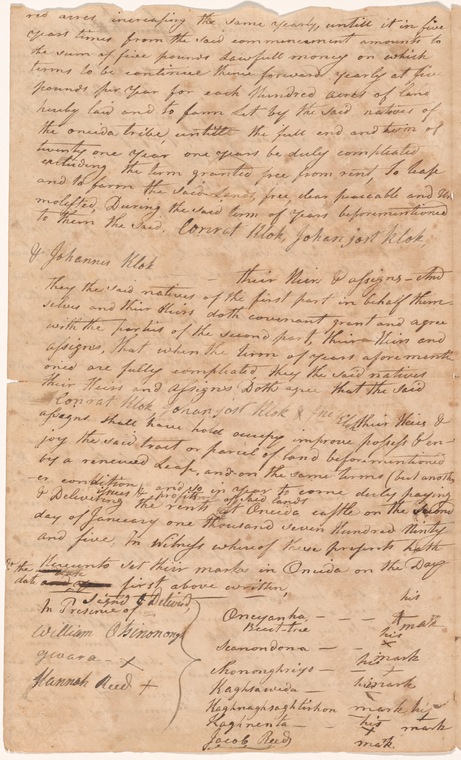 red acres, increasing the same yearly, untill it in five
years times from the said commencement amounts to
the sum of five pounds Lawfull money on which
terms to be continue thence forward yearly at five
pounds per year for each hundred acres of land
hereby laid and to farm Let by the said natives of
the oneida tribe, untill the full end and term of
twenty one year one years be duly complicated
excluding the term granted free from rent, To lease
and to farm the said Lands free, clear peaceable and Un
molested, During the said term of years beforementioned
to them the said, Conrat Klok, Johan jost Klok,
& Johannes Klok — — their Heirs & assigns — And
they the said natives of the first part in behalf them-
selves and their Heirs doth covenant grant and agree
with the parties of the second part, their Heirs and
assigns, that when the term of years aforementi
oned are fully complicated they the said natives
their Heirs and assigns Doth agree that the said
Conrat Klok, Johan jost Klok & their Heirs &
assigns shall have hold occupy improve posess & en-
joy the said tract or parcel of Land beforementioned
by a renewed Lease, and on the same terms (but another
condition) and so in year to come duly paying
& Delivering the rents at Oneida castle on the Second
day of January one thousand seven Hundred Ninty
and five, In Witness whereof these presents hath
Hereunto set their marks in Oneida on the Day
& the date first above written,
Signd & Deliverd
In Presence of
William
gwara - X
Hannah Reed +
his
Oneyanha, - - - + mark
Beech tree his
Scanondona — X
his mark
Shononghriyo —
Kaghsaweda — his mark
Kaghnaghsaghtirhon mark his
Kaghnenta — his mark
Jacob Reed X
mark.